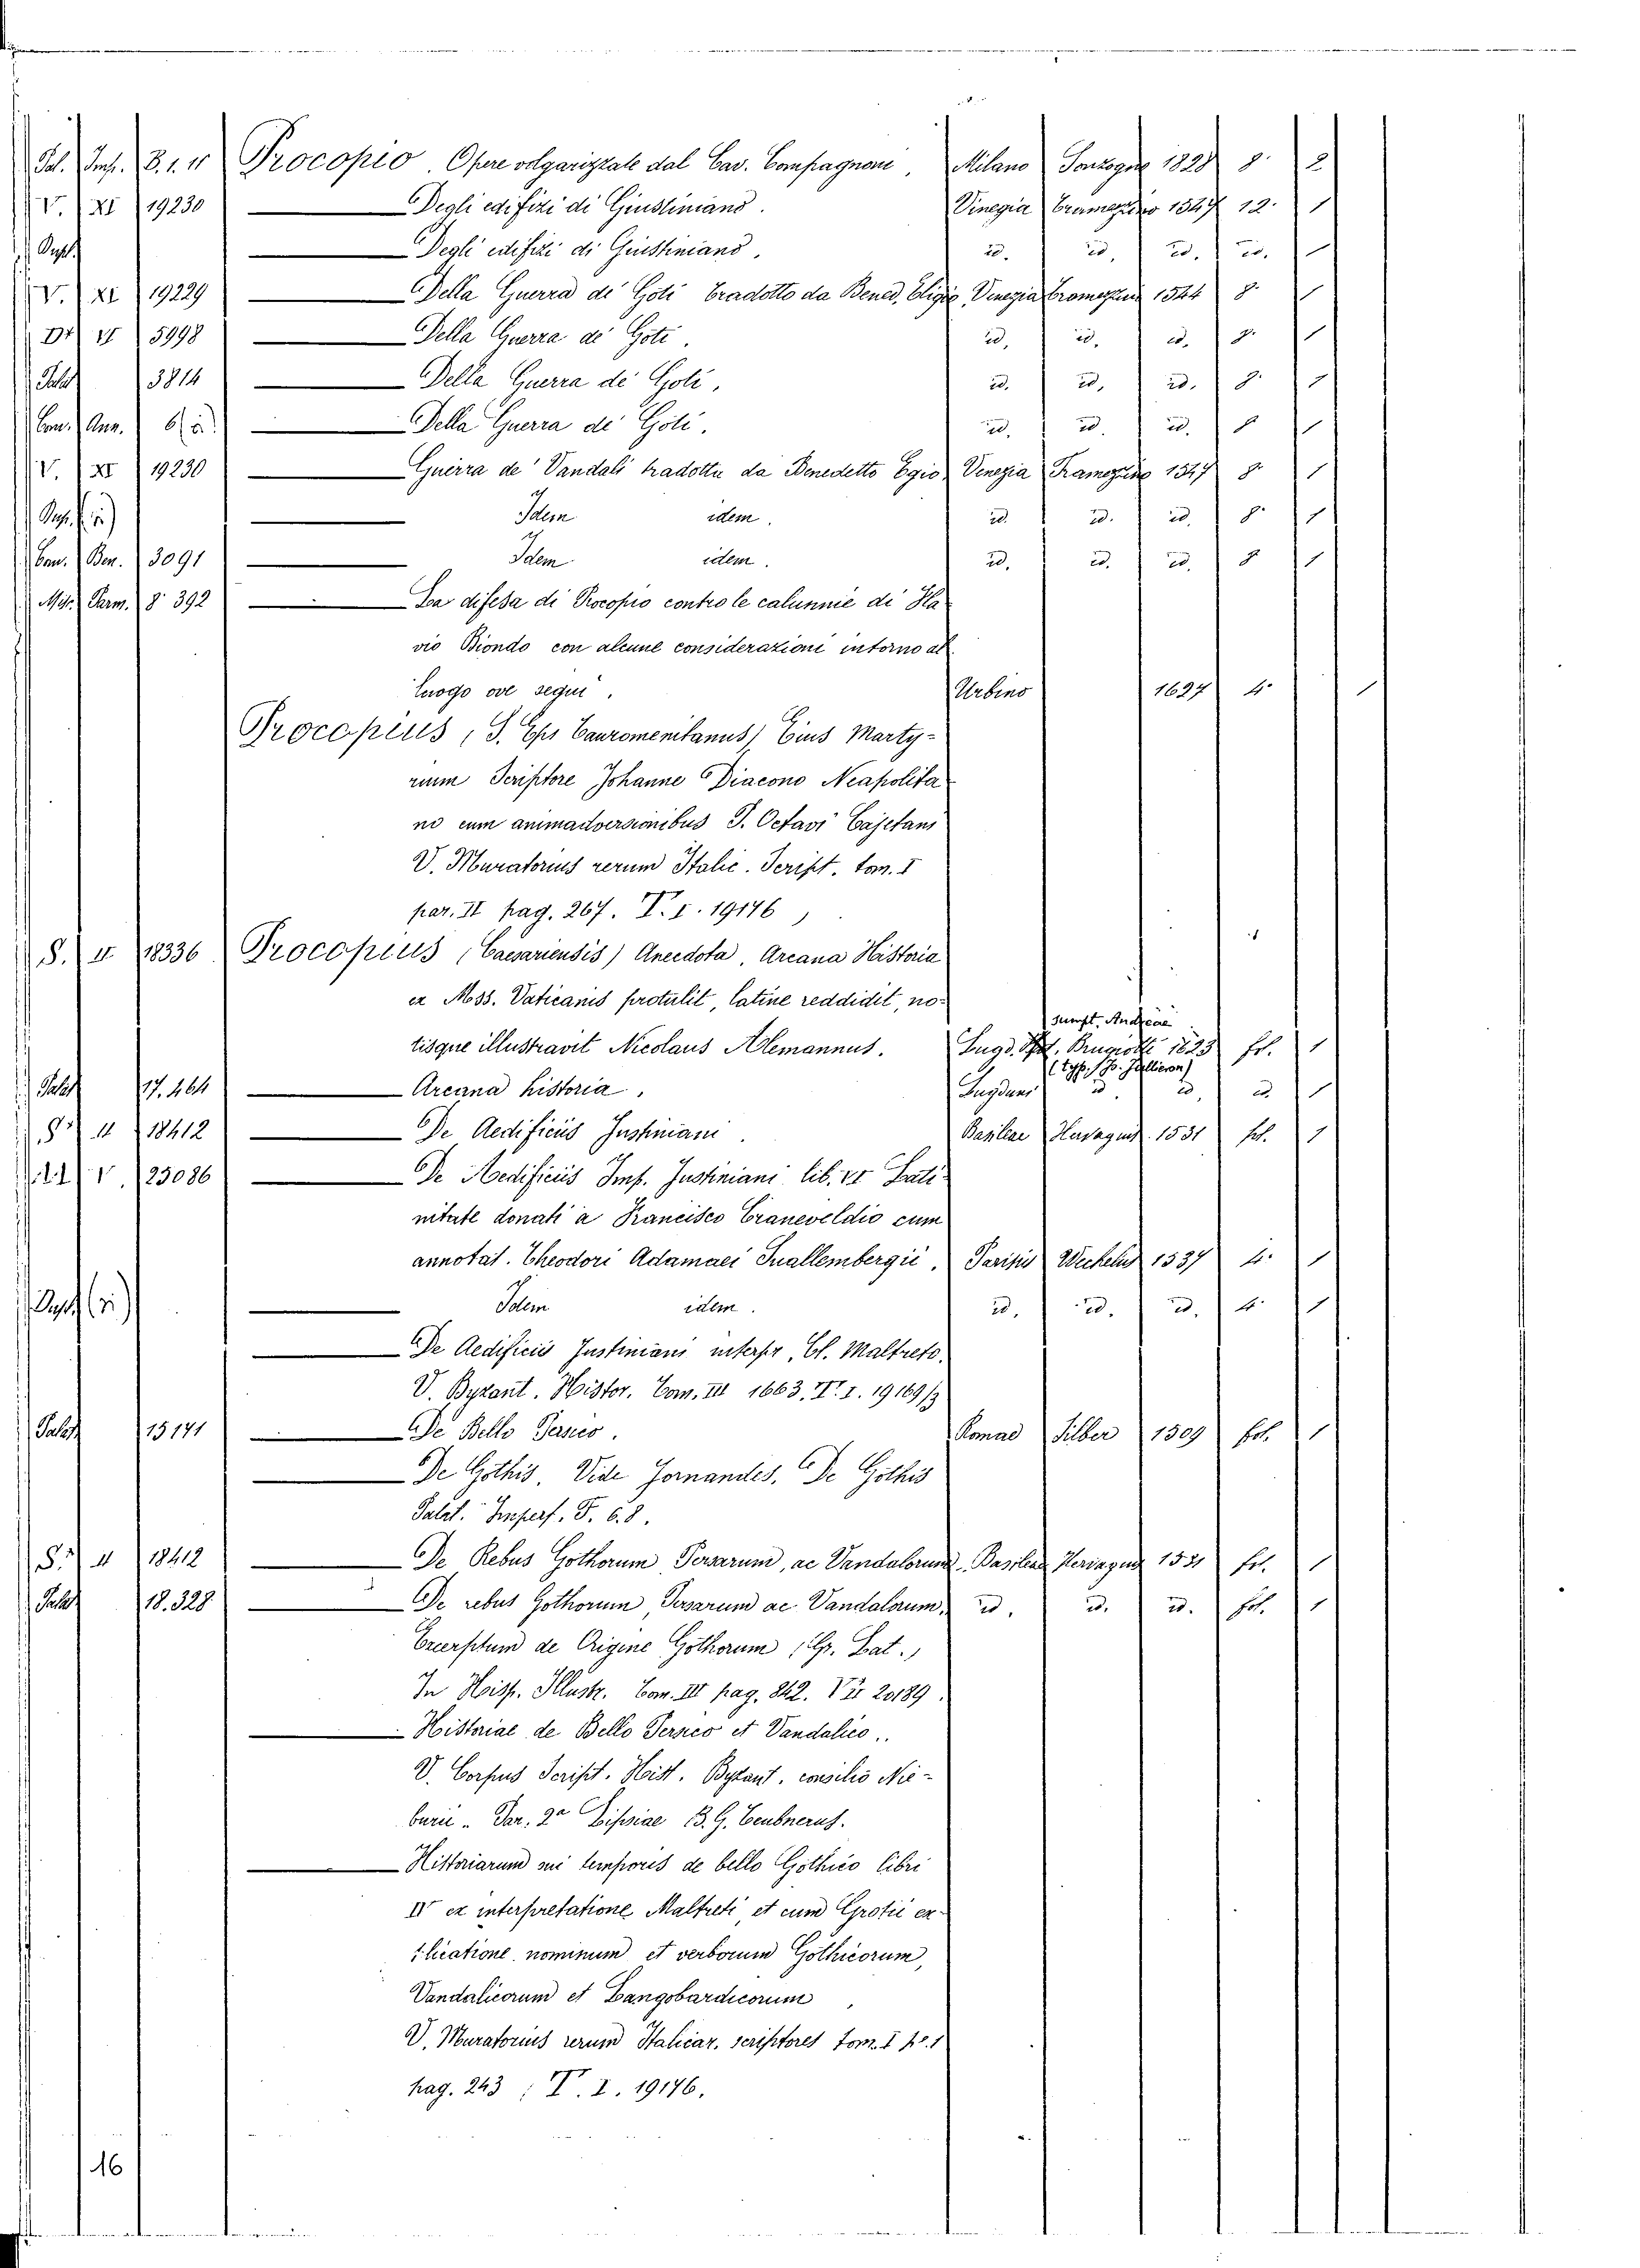 Pal. Imp. B. 1. 11 Procopio. Opere volgarizzate dal Cav. Compagnoni, Milano Sonzogno 1828 8. 2
V. XI 19230 Degli edifizi di Giustiniano. Vinegia Tramezzino 1547 12. 1
Degli edifizi di Giustiniano, id. id, id, id. 1
V. XI 19229 Della Guerra de' Goti tradotto da Bened. Eligio, Venezia Tramezzino 1544 8. 1
5998 Della Guerra de' Goti. id, id. id. 8. 1
Palat 3814 Della Guerra de' Goti, id. id, id. 8. 1
Con. Ann. 6 Della Guerra de' Goti. id. id. id. 8 1
V. XI 19230 Guerra de' Vandali tradotta da Benedetto Egio, Venezia Tramezzino 1547 8. 1
Idem idem. id. id. id. 8. 1
Con. Ben. 3091 Idem idem. id. id. id. 8 1
Mss. Parm. 8° 392 La difesa di Procopio contro le calunnie di Fla
vio Biondo con alcune considerazioni intorno al
luogo ove segui. Urbino 1627 4. 1
Procopius (S. Eps Tauromenitanus) Eius Marty-
rium Scriptore Johanne Diacono Neapolita
no cum animadversionibus J. Octavi Cajetani
V. Muratorius rerum Italic. Script. tom. I
par. II pag. 267. T. I. 19176)
S. II 18336 Procopius (Caesariensis) Anecdota, Arcana Historia
ex Mss. Vaticanis protulit, latine reddidit, no-
sumpt. Andreae
tisque illustravit Nicolaus Alemannus. Lugd. Brugiotti 1623 fol. 1
(typ. Jo. Jullieron)
Palat 17. 464 Arcana historia, Lugduni id id, id. 1
S. II 18412 De Aedificiis Justiniani. Basileae Hervagius 1531 fol. 1
V. 23086 De Aedificiis Imp. Justiniani lib. VI Lati-
nitate donati a Francisco Craneveldio cum
annotat. Theodori Adamaei Suallembergii, Parisiis Wechelus 1537 4. 1
Idem idem. id, id. id. 4. 1
De Aedificiis Justiniani interpr. Cl. Maltreto,
V. Byzant. Histor. Tom. III 1663. T. I. 19169/3
Palat 15171 De Bello Persico. Romae Silber 1509 fol. 1
De Gothis, Vide Jornandes, De Gothis
Palat. Imperf. F. 6.8.
S. II 18412 De Rebus Gothorum, Persarum, ac Vandalorum. Basileae Hervagius 1531 fol. 1
Palat 18. 328 De rebus Gothorum, Persarum ac Vandalorum, id. id. id. fol. 1
Excerptum de Origine Gothorum (Gr. Lat.)
In Hisp. Illustr. Tom. III pag. 842. 20189.
Historiae de Bello Persico et Vandalico..
V. Corpus Script. Hist. Byzant. consilio Nie-
burii. Par. 2a Lipsiae B. G. Teubnerus.
Historiarum sui temporis de bello Gothico libri
IV ex interpretatione Maltreti, et cum Grotii ex-
plicatione nominum et verborum Gothicorum,
Vandalicorum et Langobardicorum
V. Muratorius rerum Italicar. scriptores tom. I p. 1
pag. 243 : T. I. 19176.
16